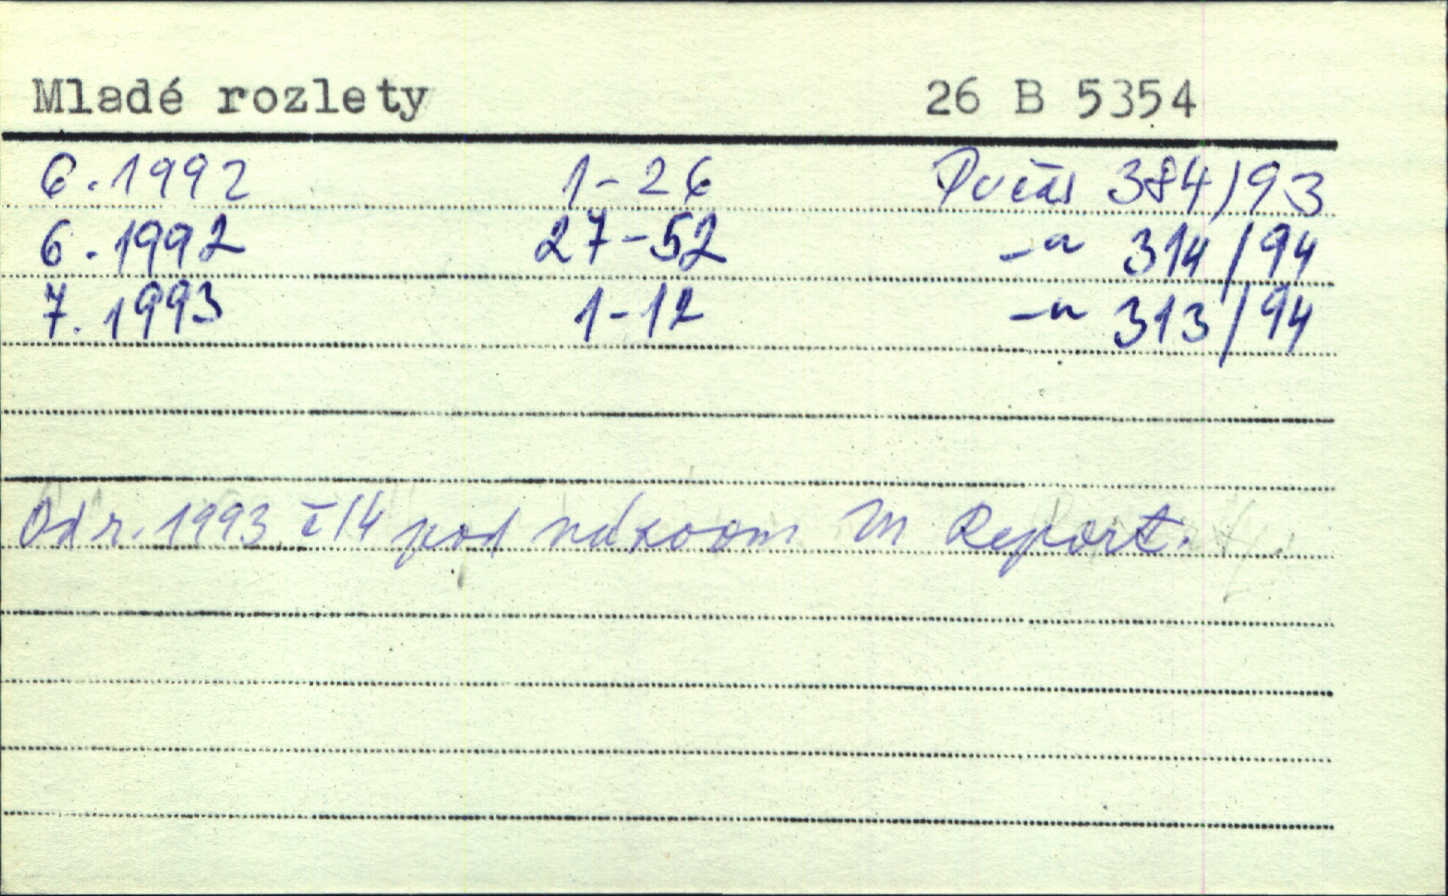 Mladé rozlety 26 B 5354
6. 1992 1-26 Počas 384/93
6. 1992 27-52 -"- 314/94
7. 1993 1-12 -"- 313/94
Od r. 1993 č/4 pod názvom M Report.